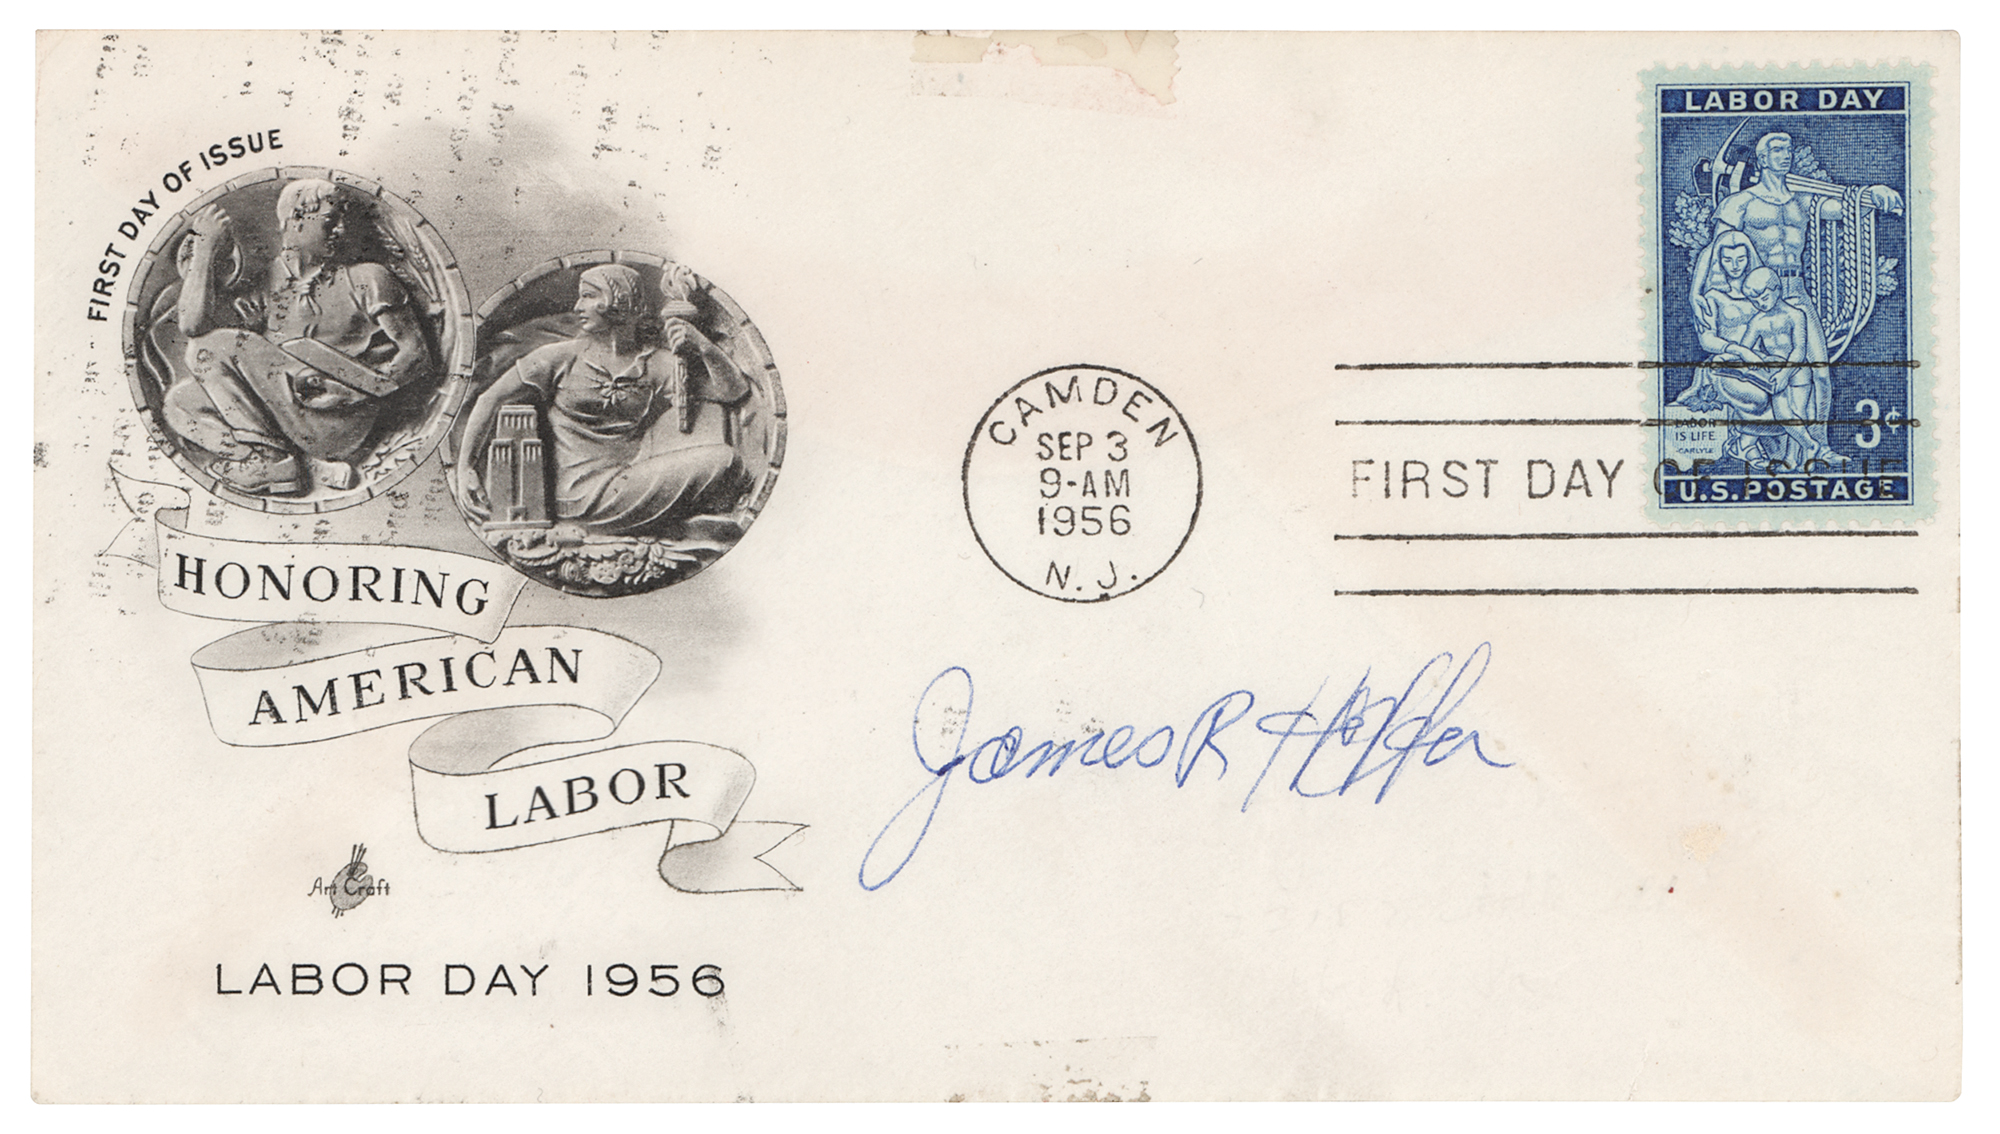 FIRST DAY OF ISSUE
HONORING
AMERICAN
LABOR
Art Craft
LABOR DAY 1956
CAMDEN
SEP 3
9-AM
1956
N. J.
LABOR DAY
LABOR
IS LIFE
-CARLYLE
3¢
U.S. POSTAGE
FIRST DAY OF ISSUE
James R Hoffa